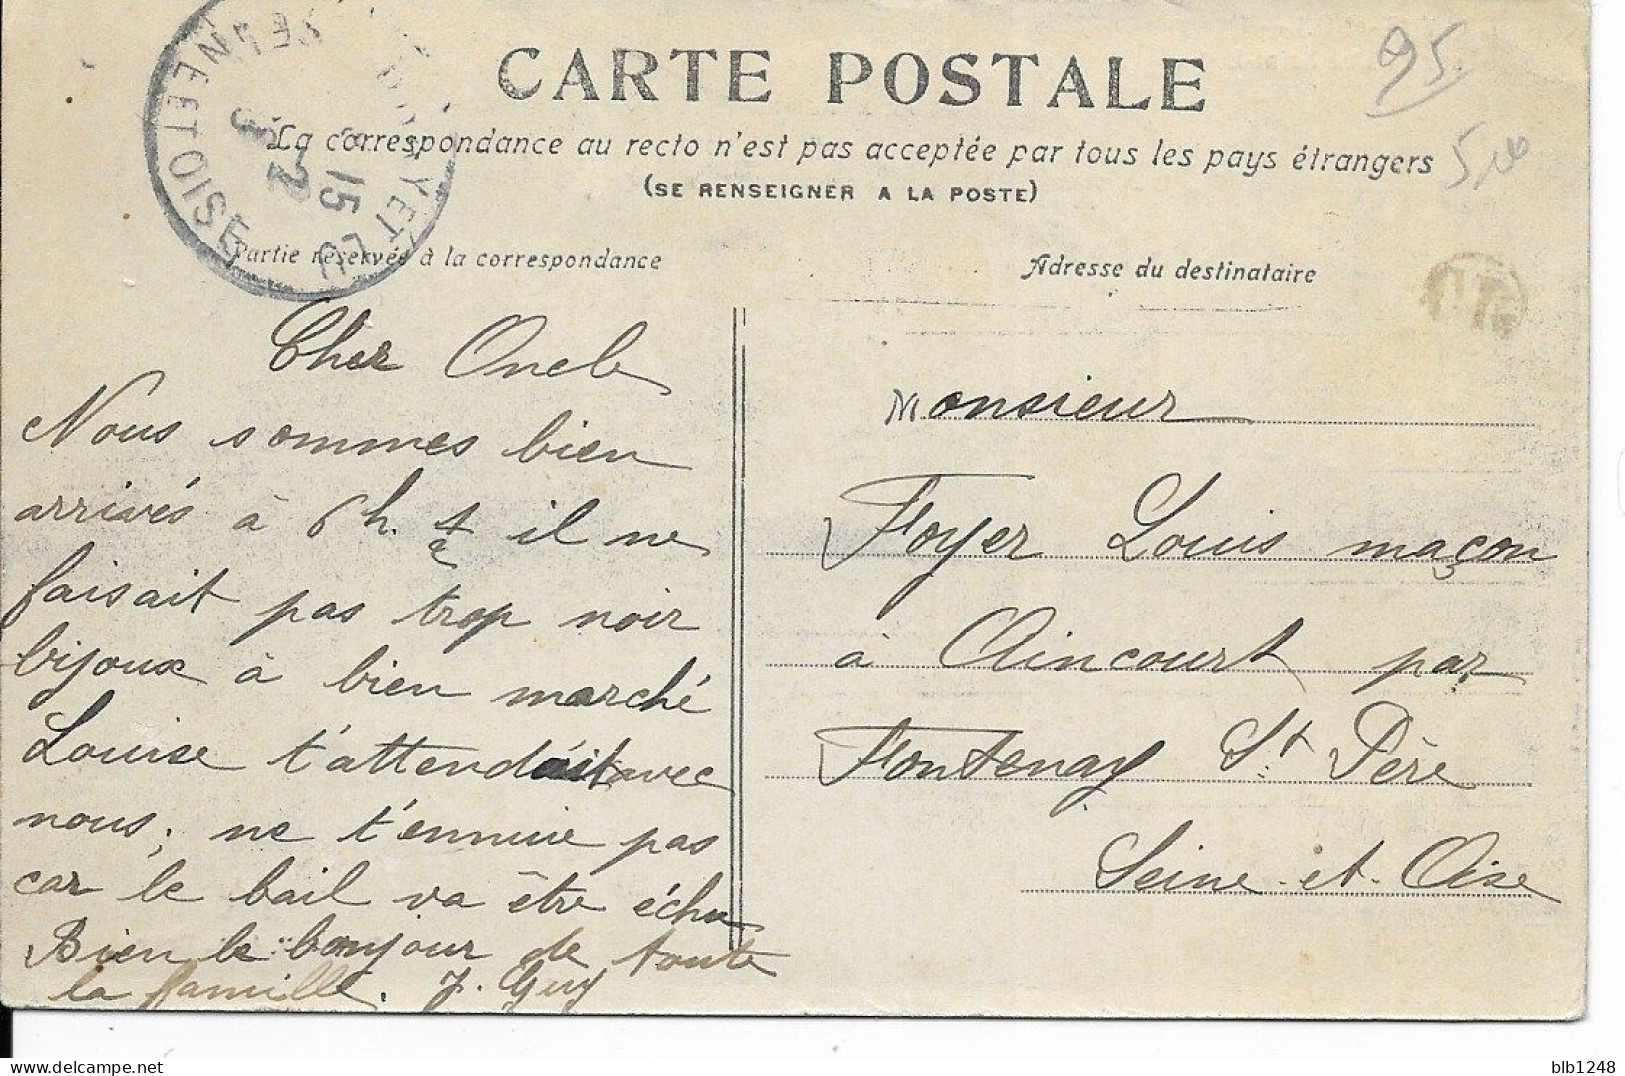 CARTE POSTALE
La correspondance au recto n'est pas acceptée par tous les pays étrangers
(SE RENSEIGNER A LA POSTE)
Partie réservée à la correspondance
Adresse du destinataire
95
SEINE ET OISE
15
Cher Oncle
Nous sommes bien
arrivés à 6 h. 1/2 il ne
faisait pas trop noir
bijoux à bien marché
Louise t'attendait avec
nous, ne t'ennuie pas
car le bail va être échu
Bien le bonjour de toute
la famille. J. Guy
Monsieur
Foyer Louis maçon
à Aincourt par
Fontenay St Père
Seine-et-Oise
blb1248